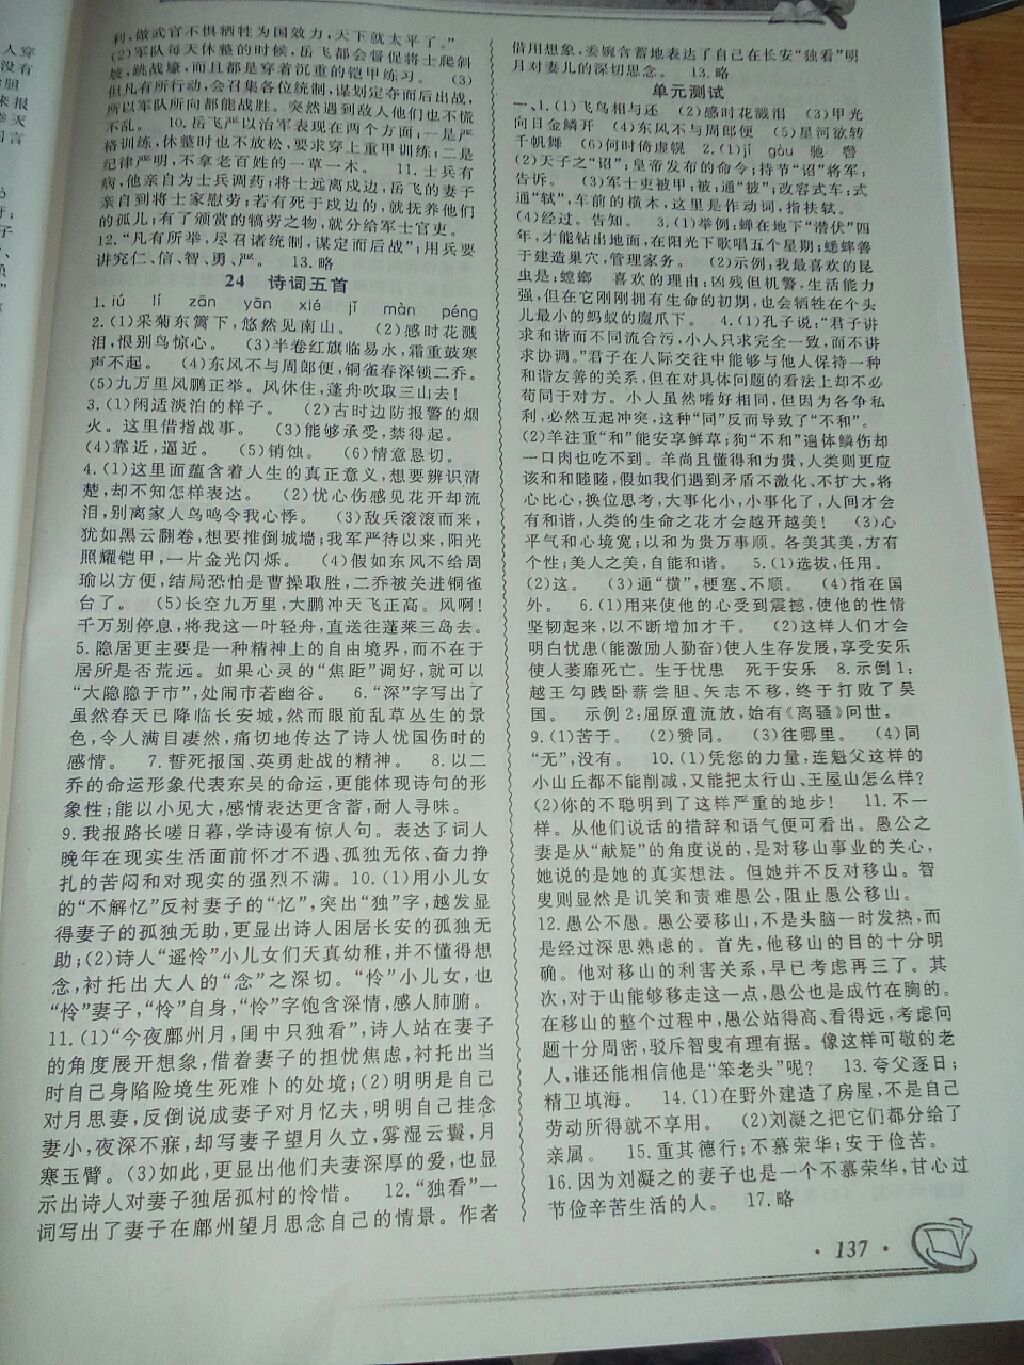 人穿
没有
胆
来报
拳灭
言
利,做武官不惧牺牲为国效力,天下就太平了。”
(2)军队每天休整的时候,岳飞都会督促将士爬斜
坡,跳战壕,而且都是穿着沉重的铠甲练习。 (3)
但凡有所行动,会召集各位统制,谋划定夺而后出战,
所以军队所向都能战胜。突然遇到敌人他们也不慌
不乱。 10.岳飞严以治军表现在两个方面:一是严
格训练,休整时也不放松,要求穿上重甲训练;二是
纪律严明,不拿老百姓的一草一木。 11.士兵有
病,他亲自为士兵调药;将士远离戍边,岳飞的妻子
亲自到将士家慰劳;若有死于戍边的,就抚养他们
的孤儿;有了颁赏的犒劳之物,就分给军士官吏。
12.“凡有所举,尽召诸统制,谋定而后战”;用兵要
讲究仁、信、智、勇、严。 13.略
24 诗词五首
1.iú lí zān yān xié jǐ màn péng
2.(1)采菊东篱下,悠然见南山。 (2)感时花溅
泪,恨别鸟惊心。 (3)半卷红旗临易水,霜重鼓寒
声不起。 (4)东风不与周郎便,铜雀春深锁二乔。
(5)九万里风鹏正举。风休住,蓬舟吹取三山去!
3.(1)闲适淡泊的样子。 (2)古时边防报警的烟
火。这里借指战事。 (3)能够承受,禁得起。
(4)靠近,逼近。 (5)销蚀。 (6)情意恳切。
4.(1)这里面蕴含着人生的真正意义,想要辨识清
楚,却不知怎样表达。 (2)忧心伤感见花开却流
泪,别离家人鸟鸣令我心悸。 (3)敌兵滚滚而来,
犹如黑云翻卷,想要推倒城墙;我军严待以来,阳光
照耀铠甲,一片金光闪烁。 (4)假如东风不给周
瑜以方便,结局恐怕是曹操取胜,二乔被关进铜雀
台了。 (5)长空九万里,大鹏冲天飞正高。风啊!
千万别停息,将我这一叶轻舟,直送往蓬莱三岛去。
5.隐居更主要是一种精神上的自由境界,而不在于
居所是否荒远。如果心灵的“焦距”调好,就可以
“大隐隐于市”,处闹市若幽谷。 6.“深”字写出了
虽然春天已降临长安城,然而眼前乱草丛生的景
色,令人满目凄然,痛切地传达了诗人忧国伤时的
感情。 7.誓死报国、英勇赴战的精神。 8.以二
乔的命运形象代表东吴的命运,更能体现诗句的形
象性;能以小见大,感情表达更含蓄,耐人寻味。
9.我报路长嗟日暮,学诗谩有惊人句。表达了词人
晚年在现实生活面前怀才不遇、孤独无依、奋力挣
扎的苦闷和对现实的强烈不满。 10.(1)用小儿女
的“不解忆”反衬妻子的“忆”,突出“独”字,越发显
得妻子的孤独无助,更显出诗人困居长安的孤独无
助;(2)诗人“遥怜”小儿女们天真幼稚,并不懂得想
念,衬托出大人的“念”之深切。“怜”小儿女,也
“怜”妻子,“怜”自身,“怜”字饱含深情,感人肺腑。
11.(1)“今夜鄜州月,闺中只独看”,诗人站在妻子
的角度展开想象,借着妻子的担忧焦虑,衬托出当
时自己身陷险境生死难卜的处境;(2)明明是自己
对月思妻,反倒说成妻子对月忆夫,明明自己挂念
妻小,夜深不寐,却写妻子望月久立,雾湿云鬟,月
寒玉臂。(3)如此,更显出他们夫妻深厚的爱,也显
示出诗人对妻子独居孤村的怜惜。 12.“独看”一
词写出了妻子在鄜州望月思念自己的情景。作者
借用想象,委婉含蓄地表达了自己在长安“独看”明
月对妻儿的深切思念。 13.略
单元测试
一、1.(1)飞鸟相与还 (2)感时花溅泪 (3)甲光
向日金鳞开 (4)东风不与周郎便 (5)星河欲转
千帆舞 (6)何时倚虚幌 2.(1)jí gòu 驰 辔
(2)天子之“诏”;皇帝发布的命令;持节“诏”将军;
告诉。 (3)军士吏被甲;被;通“披”;改容式车;式
通“轼”,车前的横木,这里是作动词,指扶轼。
(4)经过。告知。 3.(1)举例:蝉在地下“潜伏”四
年,才能钻出地面,在阳光下歌唱五个星期;蟋蟀善
于建造巢穴,管理家务。 (2)示例:我最喜欢的昆
虫是:螳螂 喜欢的理由:凶残但机警,生活能力
强,但在它刚刚拥有生命的初期,也会牺牲在个头
儿最小的蚂蚁的魔爪下。 4.(1)孔子说:“君子讲
求和谐而不同流合污,小人只求完全一致,而不讲
求协调。”君子在人际交往中能够与他人保持一种
和谐友善的关系,但在对具体问题的看法上却不必
苟同于对方。小人虽然嗜好相同,但因为各争私
利,必然互起冲突,这种“同”反而导致了“不和”。
(2)羊注重“和”能安享鲜草;狗“不和”遍体鳞伤却
一口肉也吃不到。羊尚且懂得和为贵,人类则更应
该和和睦睦,假如我们遇到矛盾不激化、不扩大,将
心比心,换位思考,大事化小,小事化了,人间才会
有和谐,人类的生命之花才会越开越美! (3)心
平气和心境宽;以和为贵万事顺。各美其美,方有
个性;美人之美,自能和谐。 5.(1)选拔,任用。
(2)这。 (3)通“横”,梗塞、不顺。 (4)指在国
外。 6.(1)用来使他的心受到震撼,使他的性情
坚韧起来,以不断增加才干。 (2)这样人们才会
明白忧患(能激励人勤奋)使人生存发展,享受安乐
使人萎靡死亡。生于忧患 死于安乐 8.示例1:
越王勾践卧薪尝胆、矢志不移,终于打败了吴
国。 示例2:屈原遭流放,始有《离骚》问世。
9.(1)苦于。 (2)赞同。 (3)往哪里。 (4)同
“无”,没有。 10.(1)凭您的力量,连魁父这样的
小山丘都不能削减,又能把太行山、王屋山怎么样?
(2)你的不聪明到了这样严重的地步! 11.不一
样。从他们说话的措辞和语气便可看出。愚公之
妻是从“献疑”的角度说的,是对移山事业的关心,
她说的是她的真实想法。但她并不反对移山。智
叟则显然是讥笑和责难愚公,阻止愚公移山。
12.愚公不愚。愚公要移山,不是头脑一时发热,而
是经过深思熟虑的。首先,他移山的目的十分明
确。他对移山的利害关系,早已考虑再三了。其
次,对于山能够移走这一点,愚公也是成竹在胸的。
在移山的整个过程中,愚公站得高、看得远,考虑问
题十分周密,驳斥智叟有理有据。像这样可敬的老
人,谁还能相信他是“笨老头”呢? 13.夸父逐日;
精卫填海。 14.(1)在野外建造了房屋,不是自己
劳动所得就不享用。 (2)刘凝之把它们都分给了
亲属。 15.重其德行;不慕荣华;安于俭苦。
16.因为刘凝之的妻子也是一个不慕荣华,甘心过
节俭辛苦生活的人。 17.略
· 137 ·